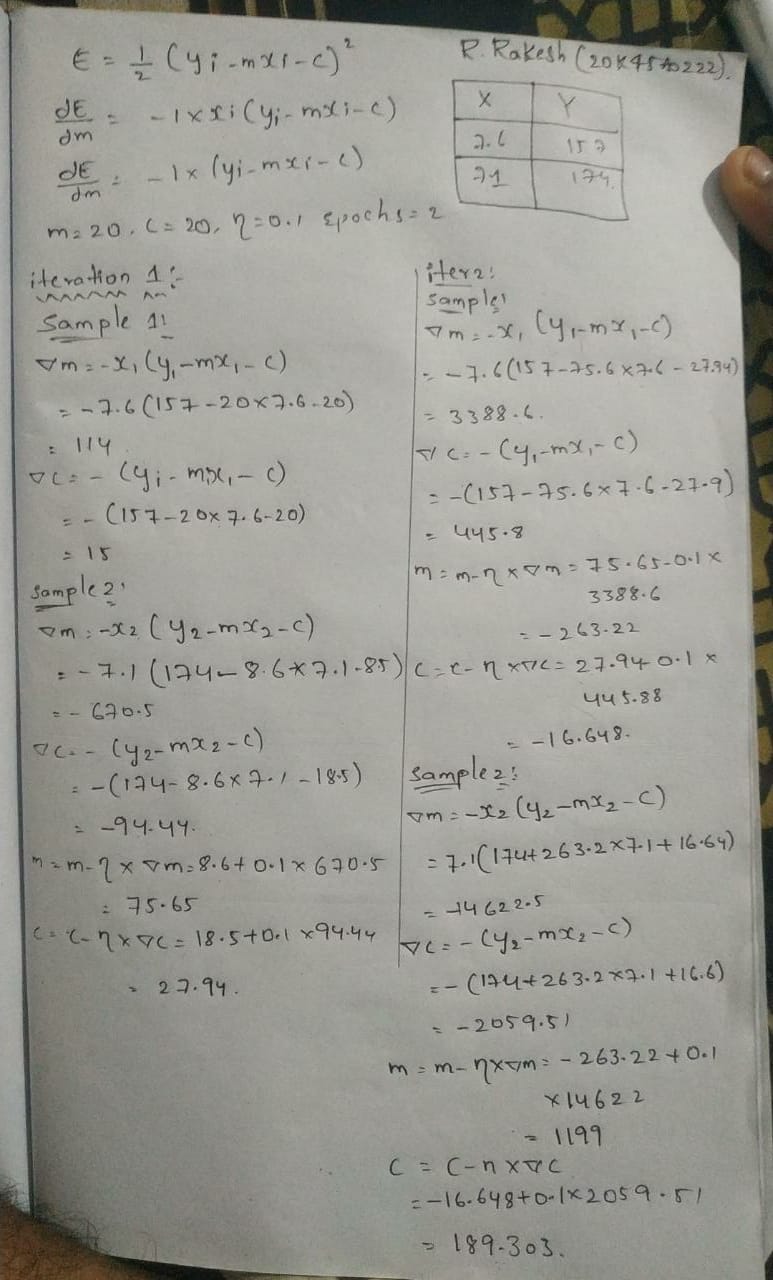 E = 1/2 (yi - mxi - c)²
R. Rakesh (20X45A0222).
dE/dm = -1 x xi (yi - mxi - c)
dE/dm = -1 x (yi - mxi - c)
X Y
7.6 157
71 174.
m = 20, c = 20, η = 0.1 Epochs = 2
iteration 1:-
Sample 1:
∇m = -x₁ (y₁ - mx₁ - c)
= -7.6 (157 - 20 x 7.6 - 20)
= 114
∇c = - (yi - mx₁ - c)
= - (157 - 20 x 7.6 - 20)
= 15
Sample 2:
∇m = -x₂ (y₂ - mx₂ - c)
= -7.1 (174 - 8.6 x 7.1 - 85)
= - 670.5
∇c = - (y₂ - mx₂ - c)
= - (174 - 8.6 x 7.1 - 18.5)
= -94.44.
m = m - η x ∇m = 8.6 + 0.1 x 670.5
= 75.65
c = c - η x ∇c = 18.5 + 0.1 x 94.44
= 27.94.
iter 2:
Sample 1
∇m = -x₁ (y₁ - mx₁ - c)
= -7.6 (157 - 75.6 x 7.6 - 27.94)
= 3388.6.
∇c = - (y₁ - mx₁ - c)
= - (157 - 75.6 x 7.6 - 27.9)
= 445.8
m = m - η x ∇m = 75.65 - 0.1 x
3388.6
= - 263.22
c = c - η x ∇c = 27.94 0.1 x
445.88
= -16.648.
Sample 2:
∇m = -x₂ (y₂ - mx₂ - c)
= 7.1 (174 + 263.2 x 7.1 + 16.64)
= -14622.5
∇c = - (y₂ - mx₂ - c)
= - (174 + 263.2 x 7.1 + 16.6)
= -2059.51
m = m - η x ∇m = - 263.22 + 0.1
x 14622
= 1199
c = c - η x ∇c
= -16.648 + 0.1 x 2059.51
= 189.303.